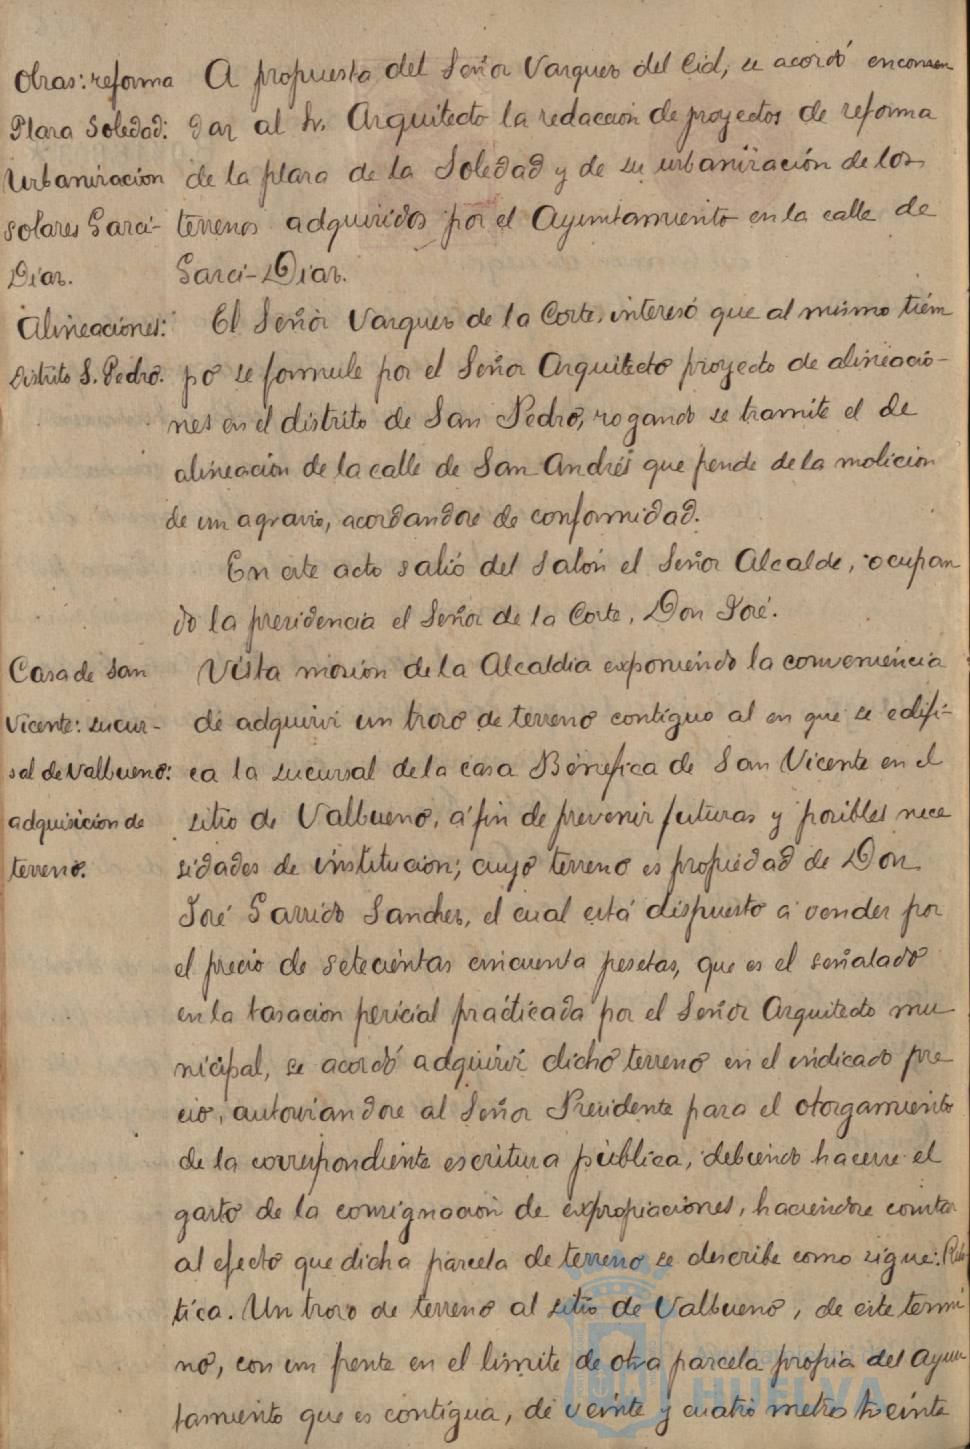 Obras: reforma
Plaza Soledad:
Urbanización
solares Garci-
Diaz.
A propuesta del Señor Vazquez del Cid, se acordó encomen
dar al Sr. Arquitecto la redacción de proyectos de reforma
de la plaza de la Soledad y de su urbanización de los
terrenos adquiridos por el Ayuntamiento en la calle de
Garci-Diaz.
Alineaciones:
Distrito S. Pedro.
El Señor Vazquez de la Corte, interesó que al mismo tiem
po se formule por el Señor Arquitecto proyecto de alineacio-
nes en el distrito de San Pedro, rogando se tramite el de
alineación de la calle de San Andrés que pende de la molicion
de un agravio, acordandose de conformidad.
En este acto salió del salón el Señor Alcalde, ocupan
do la presidencia el Señor de la Corte, Don José.
Casa de San
Vicente: sucur-
sal de Valbueno:
adquisicion de
terreno.
Vista moción de la Alcaldia exponiendo la conveniencia
de adquirir un trozo de terreno contiguo al en que se edifi-
ca la sucursal de la casa Benefica de San Vicente en el
sitio de Valbueno, a fin de prevenir futuras y posibles nece
sidades de institución; cuyo terreno es propiedad de Don
José Garrido Sanchez, el cual está dispuesto a vender por
el precio de setecientas cincuenta pesetas, que es el señalado
en la tasacion pericial practicada por el Señor Arquitecto mu
nicipal, se acordó adquirir dicho terreno en el indicado pre
cio, autorizandose al Señor Presidente para el otorgamiento
de la correspondiente escritura pública, debiendo hacerse el
gasto de la consignación de expropiaciones, haciendose constar
al efecto que dicha parcela de terreno se describe como sigue: Rús
tica. Un trozo de terreno al sitio de Valbueno, de este termi
no, con un frente en el limite de otra parcela propia del Ayun
tamiento que es contigua, de veinte y cuatro metros treinta
HUELVA